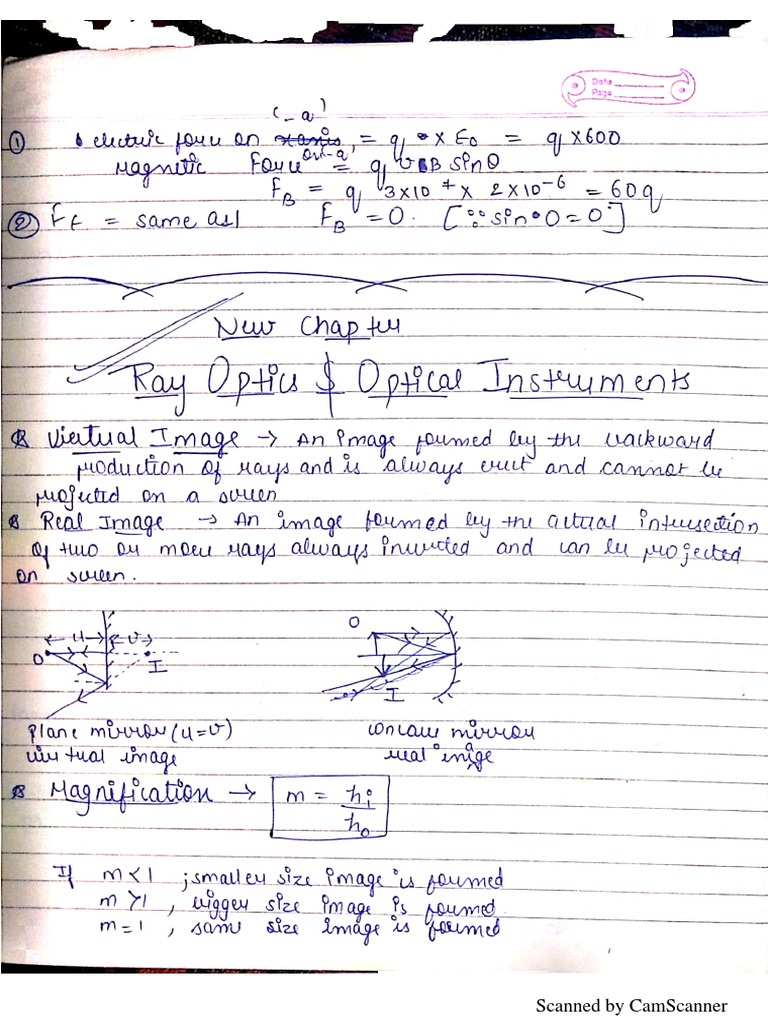 Date
Page
(-a)
① electric force on = q × E0 = q × 600
magnetic Force on -a = q v B sinθ
FB = q 3×10⁺ × 2×10⁻⁶ = 60q
② Ff = same as 1 FB = 0. [∵ sin 0 = 0]
New Chapter
Ray Optics & Optical Instruments
Virtual Image → An image formed by the backward
production of rays and is always erect and cannot be
projected on a screen
Real Image → An image formed by the actual intersection
of two or more rays always inverted and can be projected
on screen.
u v
O I
O
I
plane mirror (u=v) concave mirror
virtual image real image
Magnification → m = hi/ho
If m < 1 ; smaller size image is formed
m > 1 , bigger size image is formed
m = 1 , same size image is formed
Scanned by CamScanner